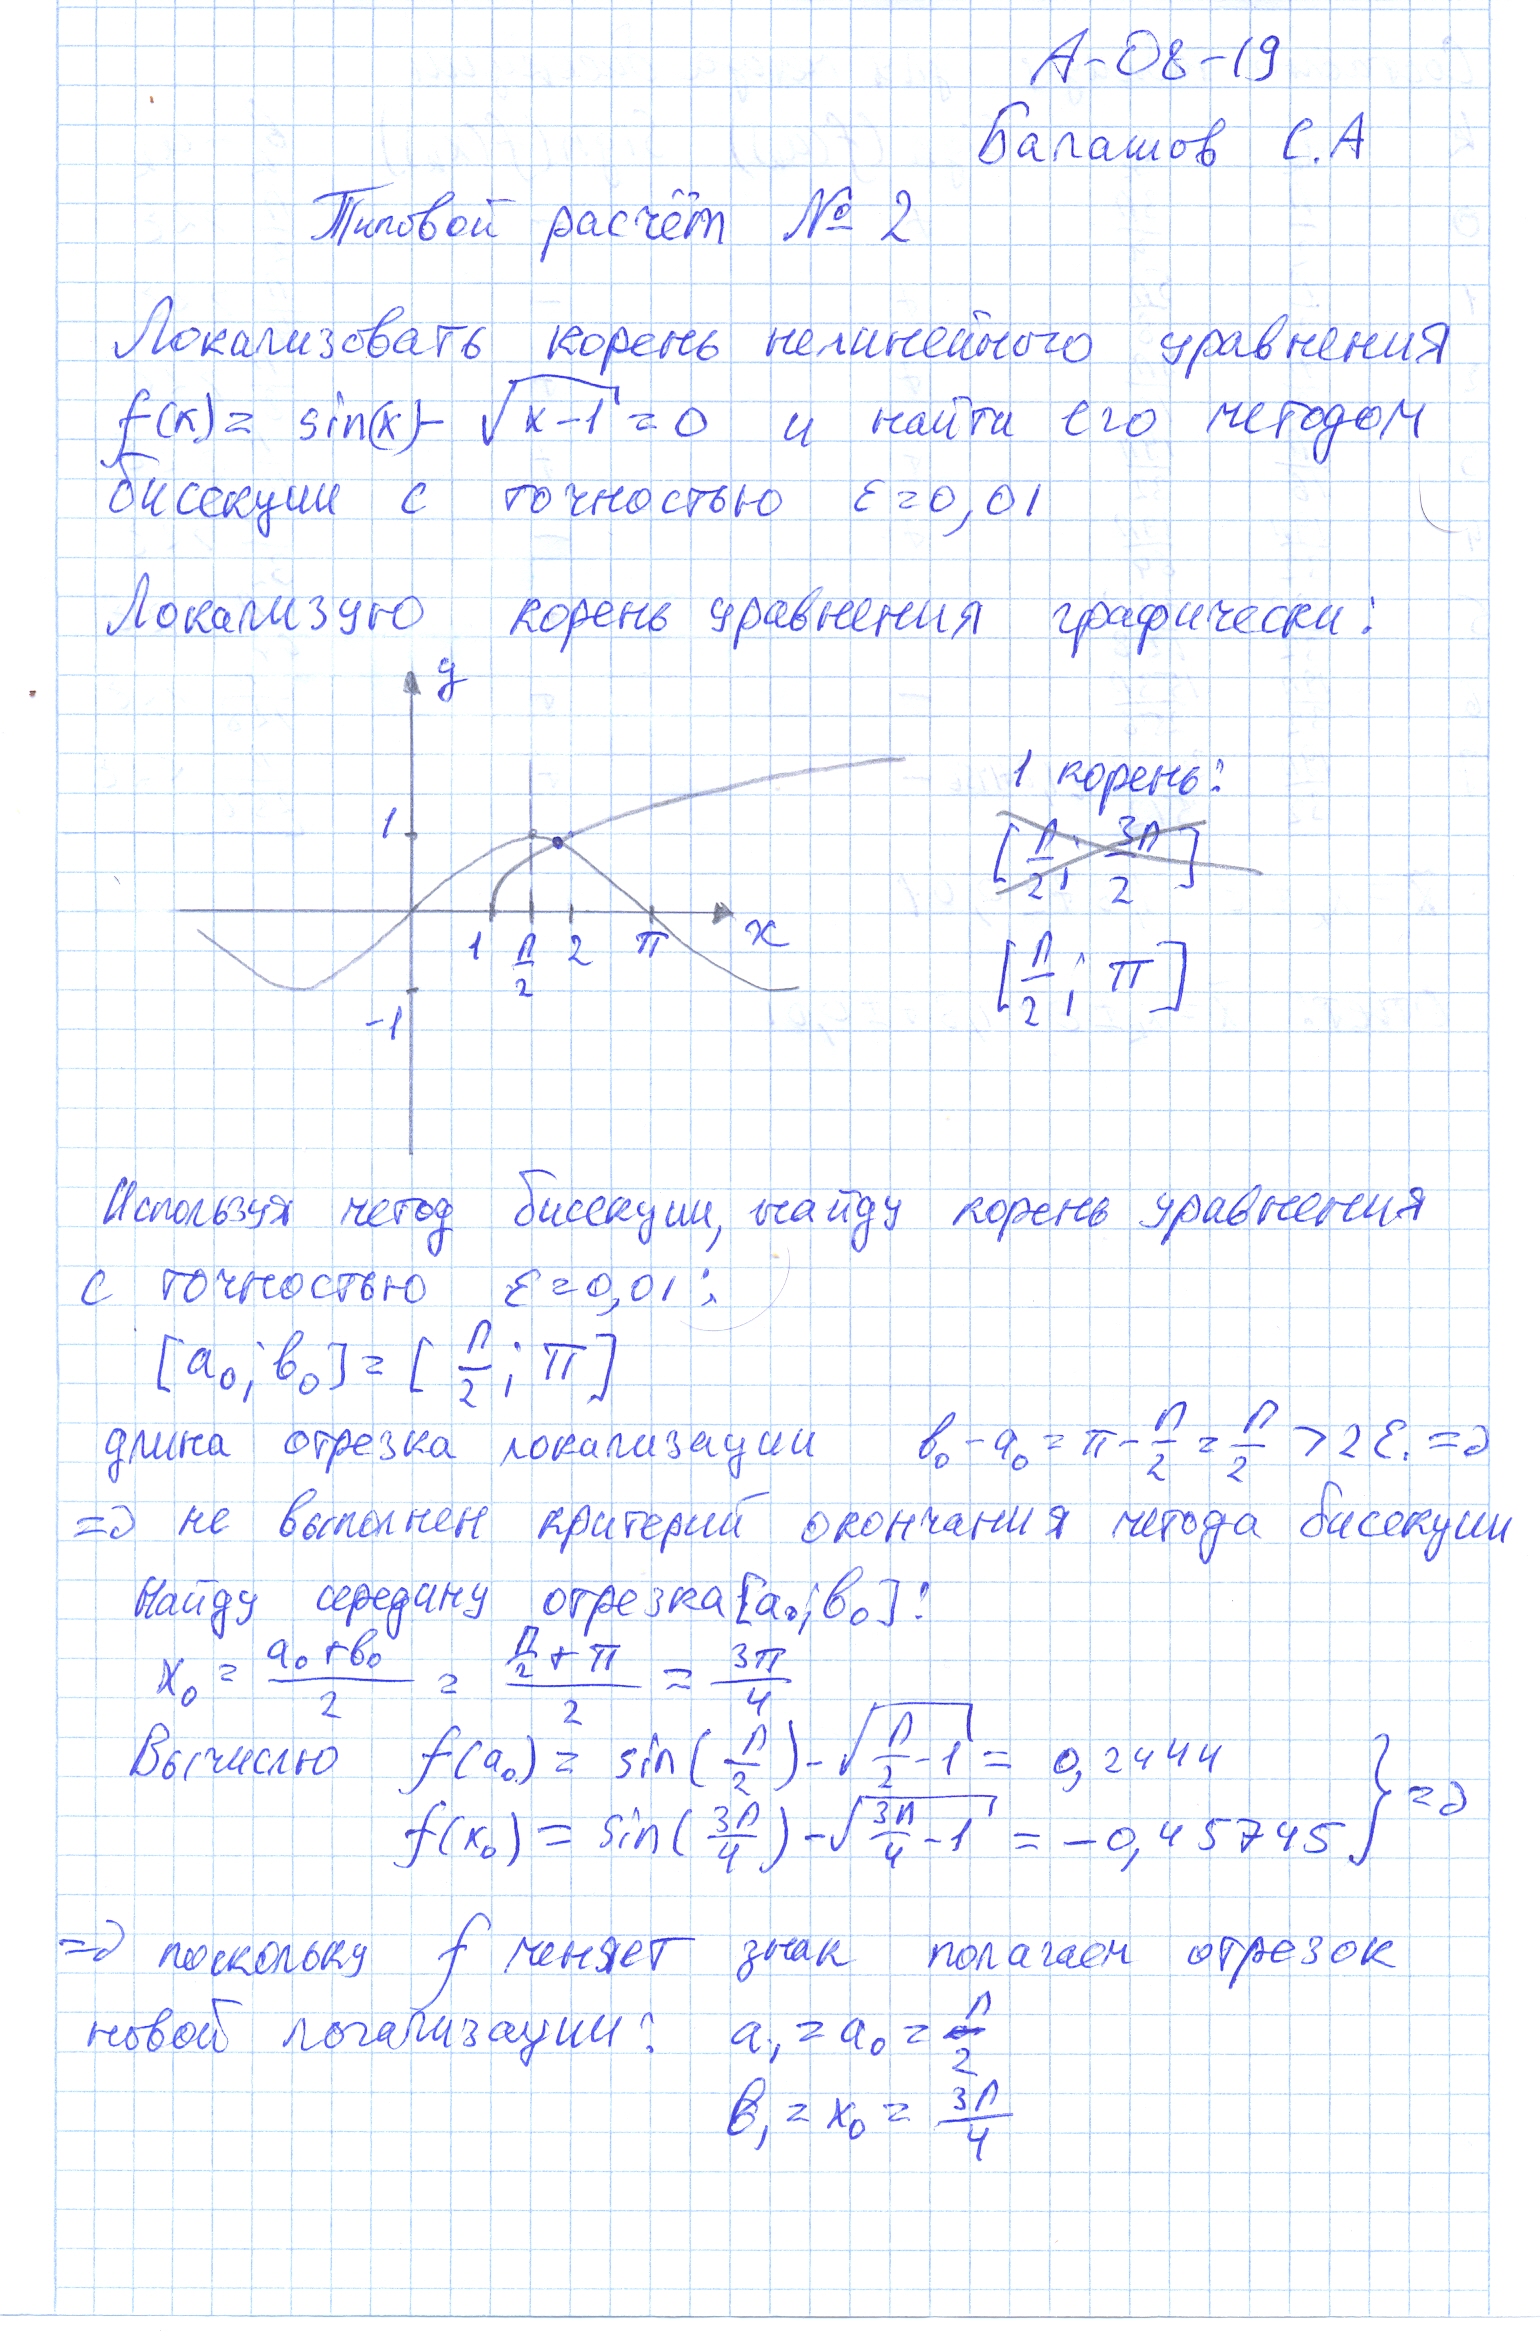 А-08-19
Балашов С.А
Типовой расчёт № 2
Локализовать корень нелинейного уравнения
f(x) = sin(x) - √(x-1) = 0 и найти его методом
бисекции с точностью ε = 0,01
Локализую корень уравнения графически:
y
1 корень:
[π/2; 3π/2]
1
1 π/2 2 π x
[π/2; π]
-1
Используя метод бисекции, найду корень уравнения
с точностью ε = 0,01:
[a₀; b₀] = [π/2; π]
длина отрезка локализации b₀ - a₀ = π - π/2 = π/2 > 2ε. =>
=> не выполнен критерий окончания метода бисекции
Найду середину отрезка [a₀; b₀]:
x₀ = (a₀ + b₀)/2 = (π/2 + π)/2 = 3π/4
Вычислю f(a₀) = sin(π/2) - √(π/2 - 1) = 0,2444
f(x₀) = sin(3π/4) - √(3π/4 - 1) = -0,45745 } =>
=> поскольку f меняет знак полагаем отрезок
новой логализации: a₁ = a₀ = π/2
b₁ = x₀ = 3π/4